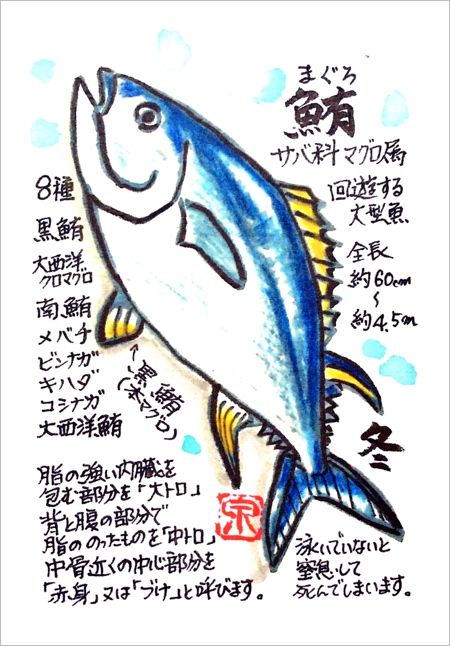 まぐろ
鮪
サバ科マグロ属
回遊する
大型魚
全長
約60cm
〜
約4.5m
8種
黒鮪
大西洋
クロマグロ
南鮪
メバチ
ビンナガ
キハダ
コシナガ
大西洋鮪
黒鮪
(本マグロ)
冬
脂の強い内臓を
包む部分を「大トロ」
背と腹の部分で
脂ののったものを「中トロ」
中骨近くの中心部分を
「赤身」又は「づけ」と呼びます。
泳いでいないと
窒息して
死んでしまいます。